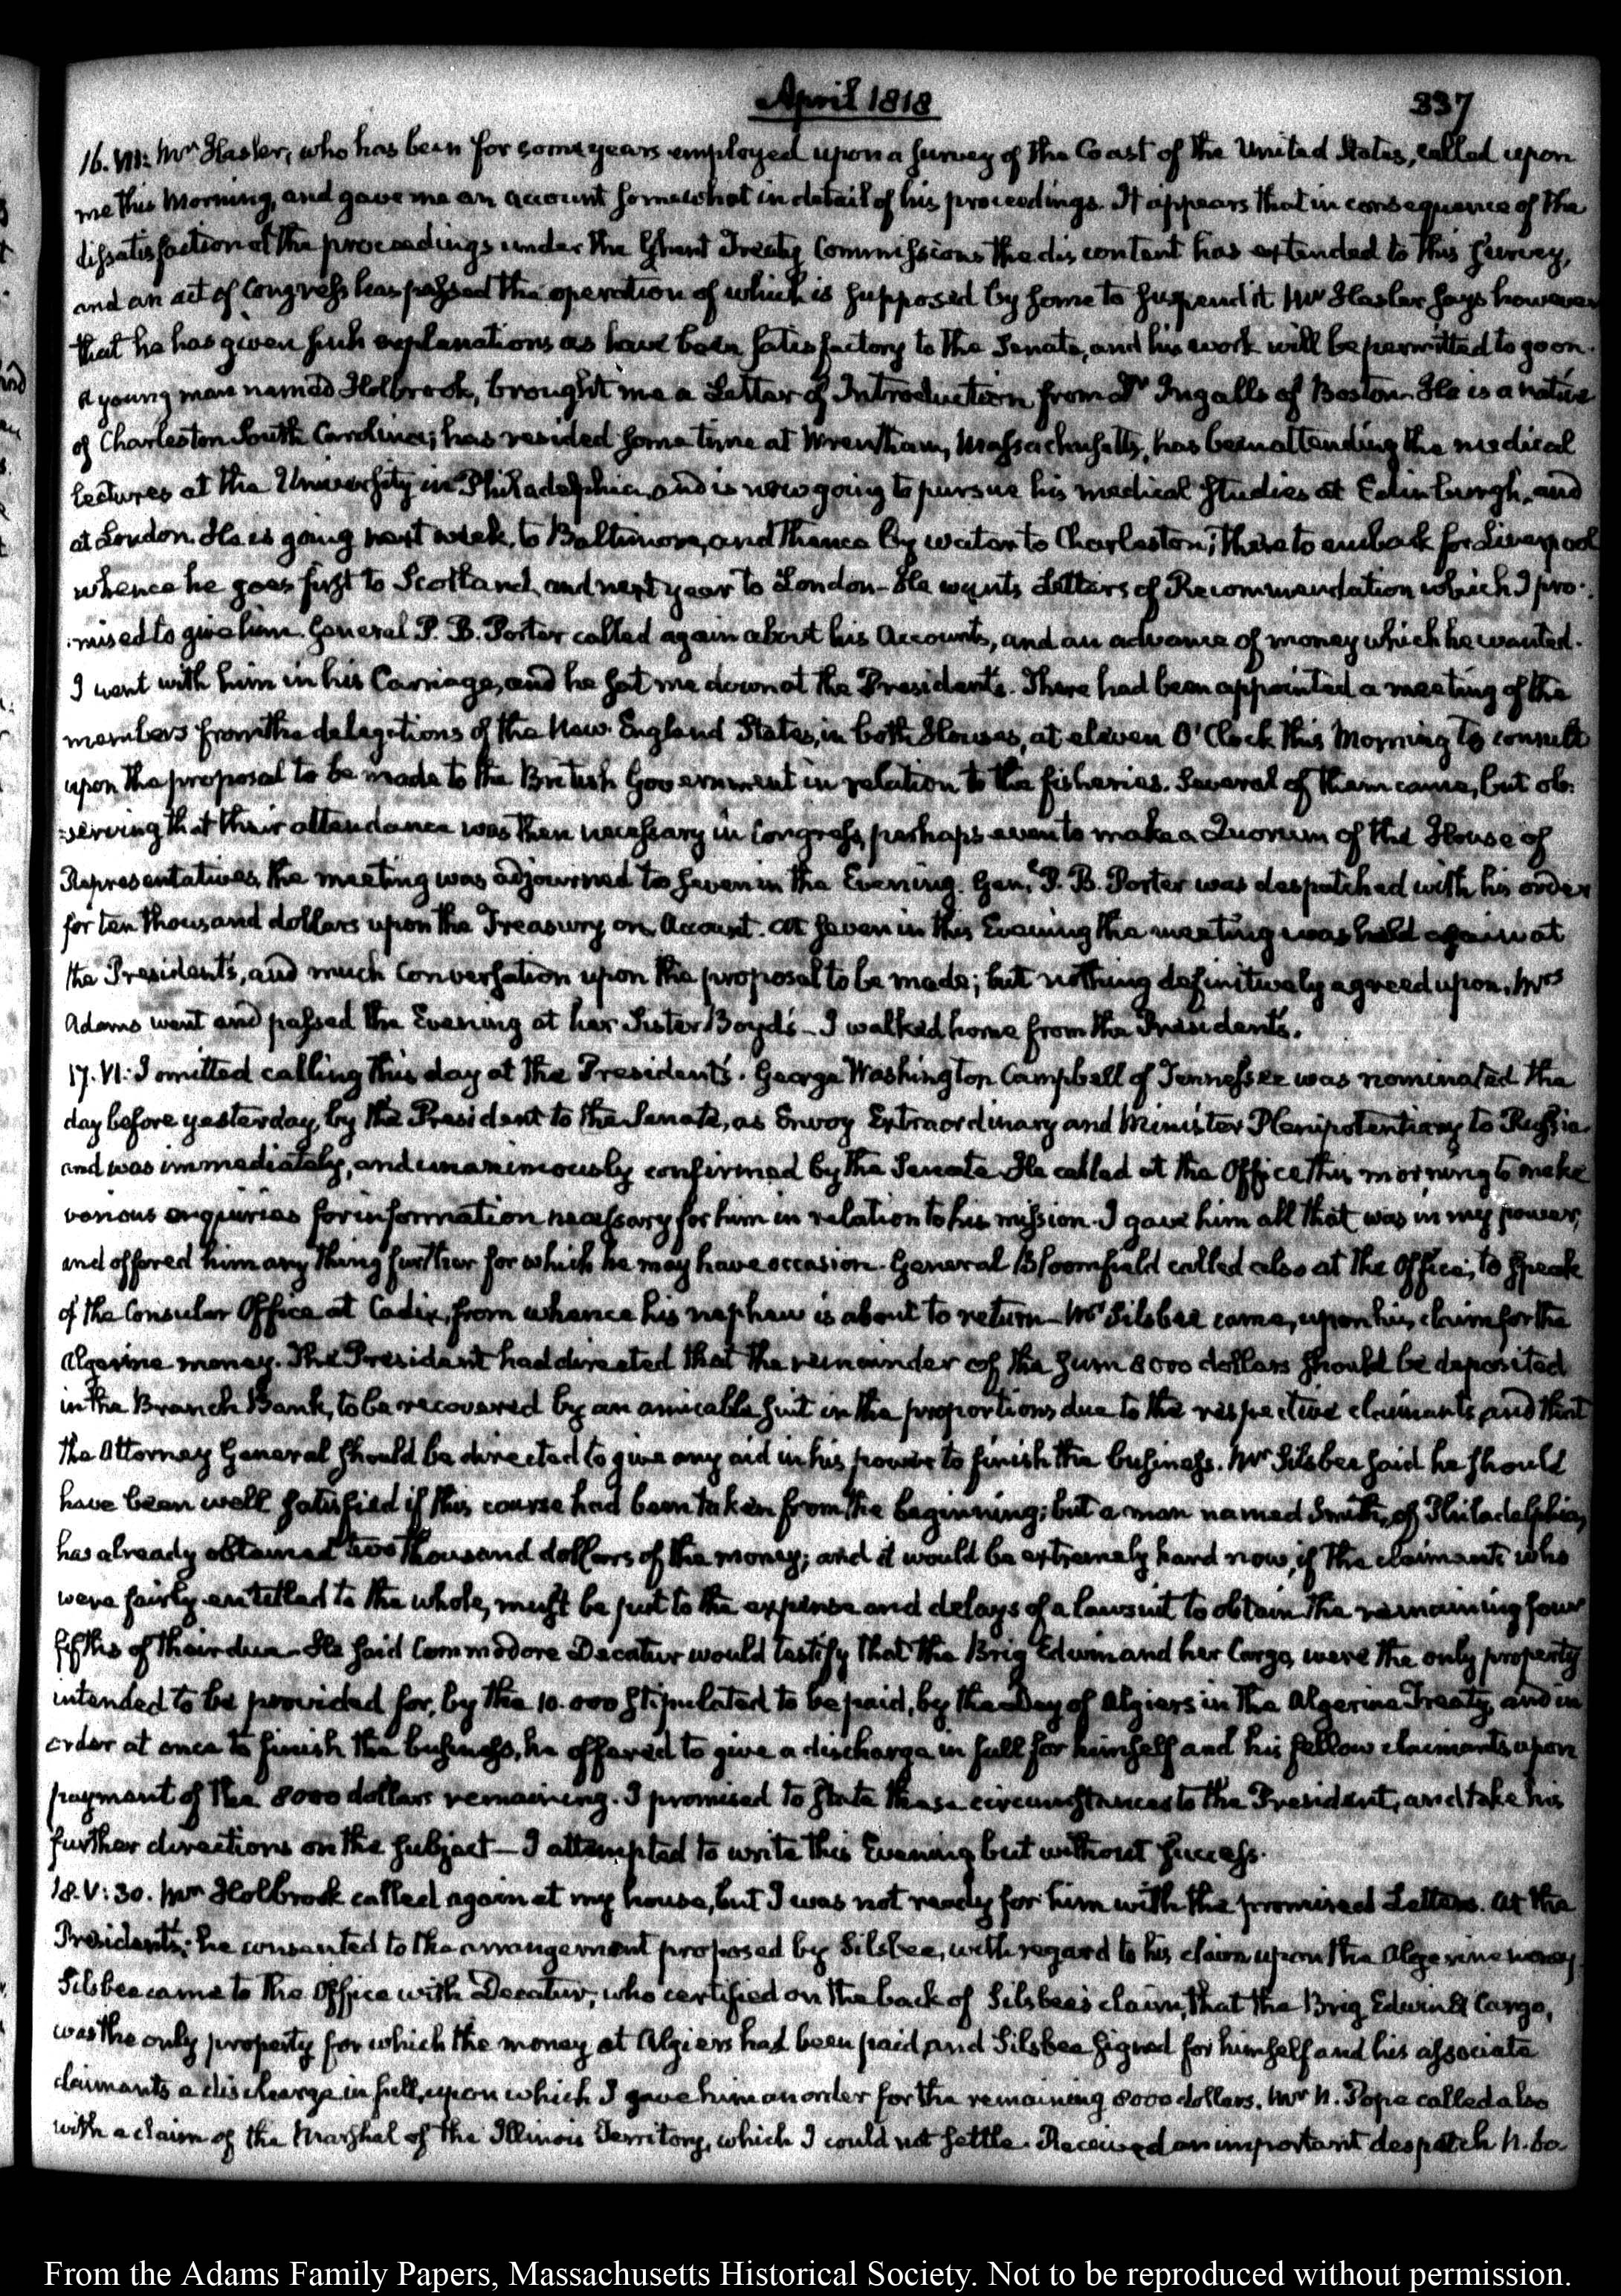 April 1818
337
16. VII: Mr Hasler, who has been for some years employed upon a survey of the Coast of the United States, called upon
me this Morning, and gave me an account somewhat in detail of his proceedings. It appears that in consequence of the
dissatisfaction at the proceedings under the Ghent Treaty Commissions the discontent has extended to this survey,
and an act of Congress has passed the operation of which is supposed by some to suspend it Mr Hasler says however
that he has given such explanations as have been satisfactory to the Senate, and his work will be permitted to go on.
A young man named Holbrook, brought me a Letter of Introduction from Dr Ingalls of Boston. He is a native
of Charleston South Carolina; has resided some time at Wrentham, Massachusetts, has been attending the medical
lectures at the University in Philadelphia, and is now going to pursue his medical studies at Edinburgh, and
at London. He is going next week, to Baltimore, and thence by water to Charleston; there to embark for Liverpool
whence he goes first to Scotland, and next year to London - He wants Letters of Recommendation which I pro-
:mised to give him. General P. B. Porter called again about his Accounts, and an advance of money which he wanted.
I went with him in his Carriage, and he set me down at the President's. There had been appointed a meeting of the
members from the delegations of the New-England States, in both Houses, at eleven O'Clock this Morning to consult
upon the proposal to be made to the British Government in relation to the fisheries. Several of them came, but ob:
:serving that their attendance was then necessary in Congress, perhaps even to make a Quorum of the House of
Representatives, the meeting was adjourned to seven in the Evening. Genl. P. B. Porter was despatched with his order
for ten thousand dollars upon the Treasury on Account. At seven in this Evening the meeting was held again at
the President's, and much Conversation upon the proposal to be made; but nothing definitively agreed upon. Mrs
Adams went and passed the Evening at her Sister Boyd's - I walked home from the President's.
17. VI: I omitted calling this day at the President's. George Washington Campbell of Tennessee was nominated the
day before yesterday, by the President to the Senate, as Envoy Extraordinary and Minister Plenipotentiary to Russia
and was immediately, and unanimously confirmed by the Senate. He called at the Office this morning to make
various enquiries for information necessary for him in relation to his mission. I gave him all that was in my power,
and offered him any thing further for which he may have occasion. General Bloomfield called also at the Office; to speak
of the Consular Office at Cadiz, from whence his nephew is about to return - Mr Silsbee came, upon his claim for the
Algerine money. The President had directed that the remainder of the sum 8000 dollars should be deposited
in the Branch Bank, to be recovered by an amicable suit in the proportions due to the respective claimants, and that
the Attorney General should be directed to give any aid in his power to finish the business. Mr Silsbee said he should
have been well satisfied if this course had been taken from the beginning; but a man named Smith, of Philadelphia,
has already obtained two thousand dollars of the money; and it would be extremely hard now, if the claimants who
were fairly entitled to the whole, must be put to the expense and delays of a lawsuit to obtain the remaining four
fifths of their due - He said Commodore Decatur would testify that the Brig Edwin and her Cargo, were the only property
intended to be provided for, by the 10.000 stipulated to be paid, by the Dey of Algiers in the Algerine Treaty, and in
order at once to finish the business, he offered to give a discharge in full for himself and his fellow claimants upon
payment of the 8000 dollars remaining. I promised to state these circumstances to the President, and take his
further directions on the subject - I attempted to write this Evening but without success.
18. V: 30. Mr Holbrook called again at my house, but I was not ready for him with the promised Letters. At the
President's; he consented to the arrangement proposed by Silsbee, with regard to his claim upon the Algerine money
Silsbee came to the Office with Decatur, who certified on the back of Silsbee's claim, that the Brig Edwin & Cargo,
was the only property for which the money at Algiers had been paid, and Silsbee signed for himself and his associate
claimants a discharge in full, upon which I gave him an order for the remaining 8000 dollars. Mr N. Pope called also
with a claim of the Marshal of the Illinois Territory, which I could not settle. Received an important despatch N. 60
From the Adams Family Papers, Massachusetts Historical Society. Not to be reproduced without permission.